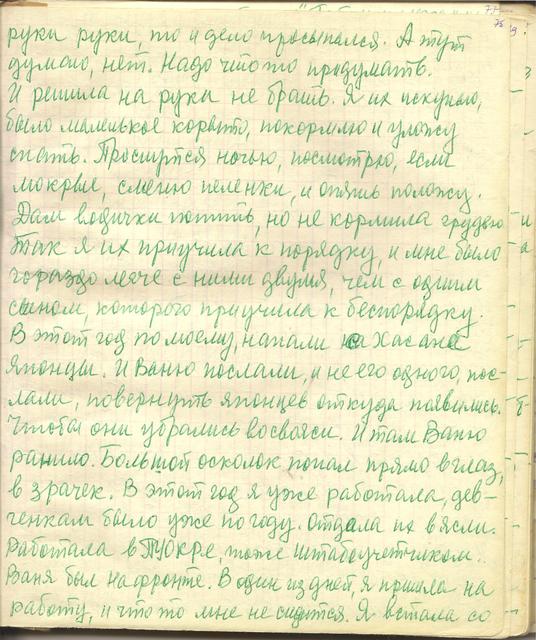 75
руки руки, то и дело просыпался. А тут
думаю, нет. Надо что то продумать.
И решила на руки не брать. Я их искупаю,
было маленькое корыто, покормлю и уложу
спать. Проснутся ночью, посмотрю, если
мокрые, сменю пеленки, и опять положу.
Дам водички попить, но не кормила грудью
Так я их приучила к порядку, и мне было
гораздо легче с ними двумя, чем с одним
сыном, которого приучила к беспорядку.
В этот год по моему, напали на Хасане
японцы. И Ваню послали, и не его одного, пос-
лали, повернуть японцев откуда появились.
Чтобы они убрались восвояси. И там Ваню
ранило. Большой осколок попал прямо в глаз,
в зрачек. В этот год я уже работала, дев-
ченкам было уже по году. Отдала их в ясли.
Работала в тоже штабоучетчиком.
Ваня был на фронте. В один из дней, я пришла на
работу, и что то мне не сидится. Я встала со